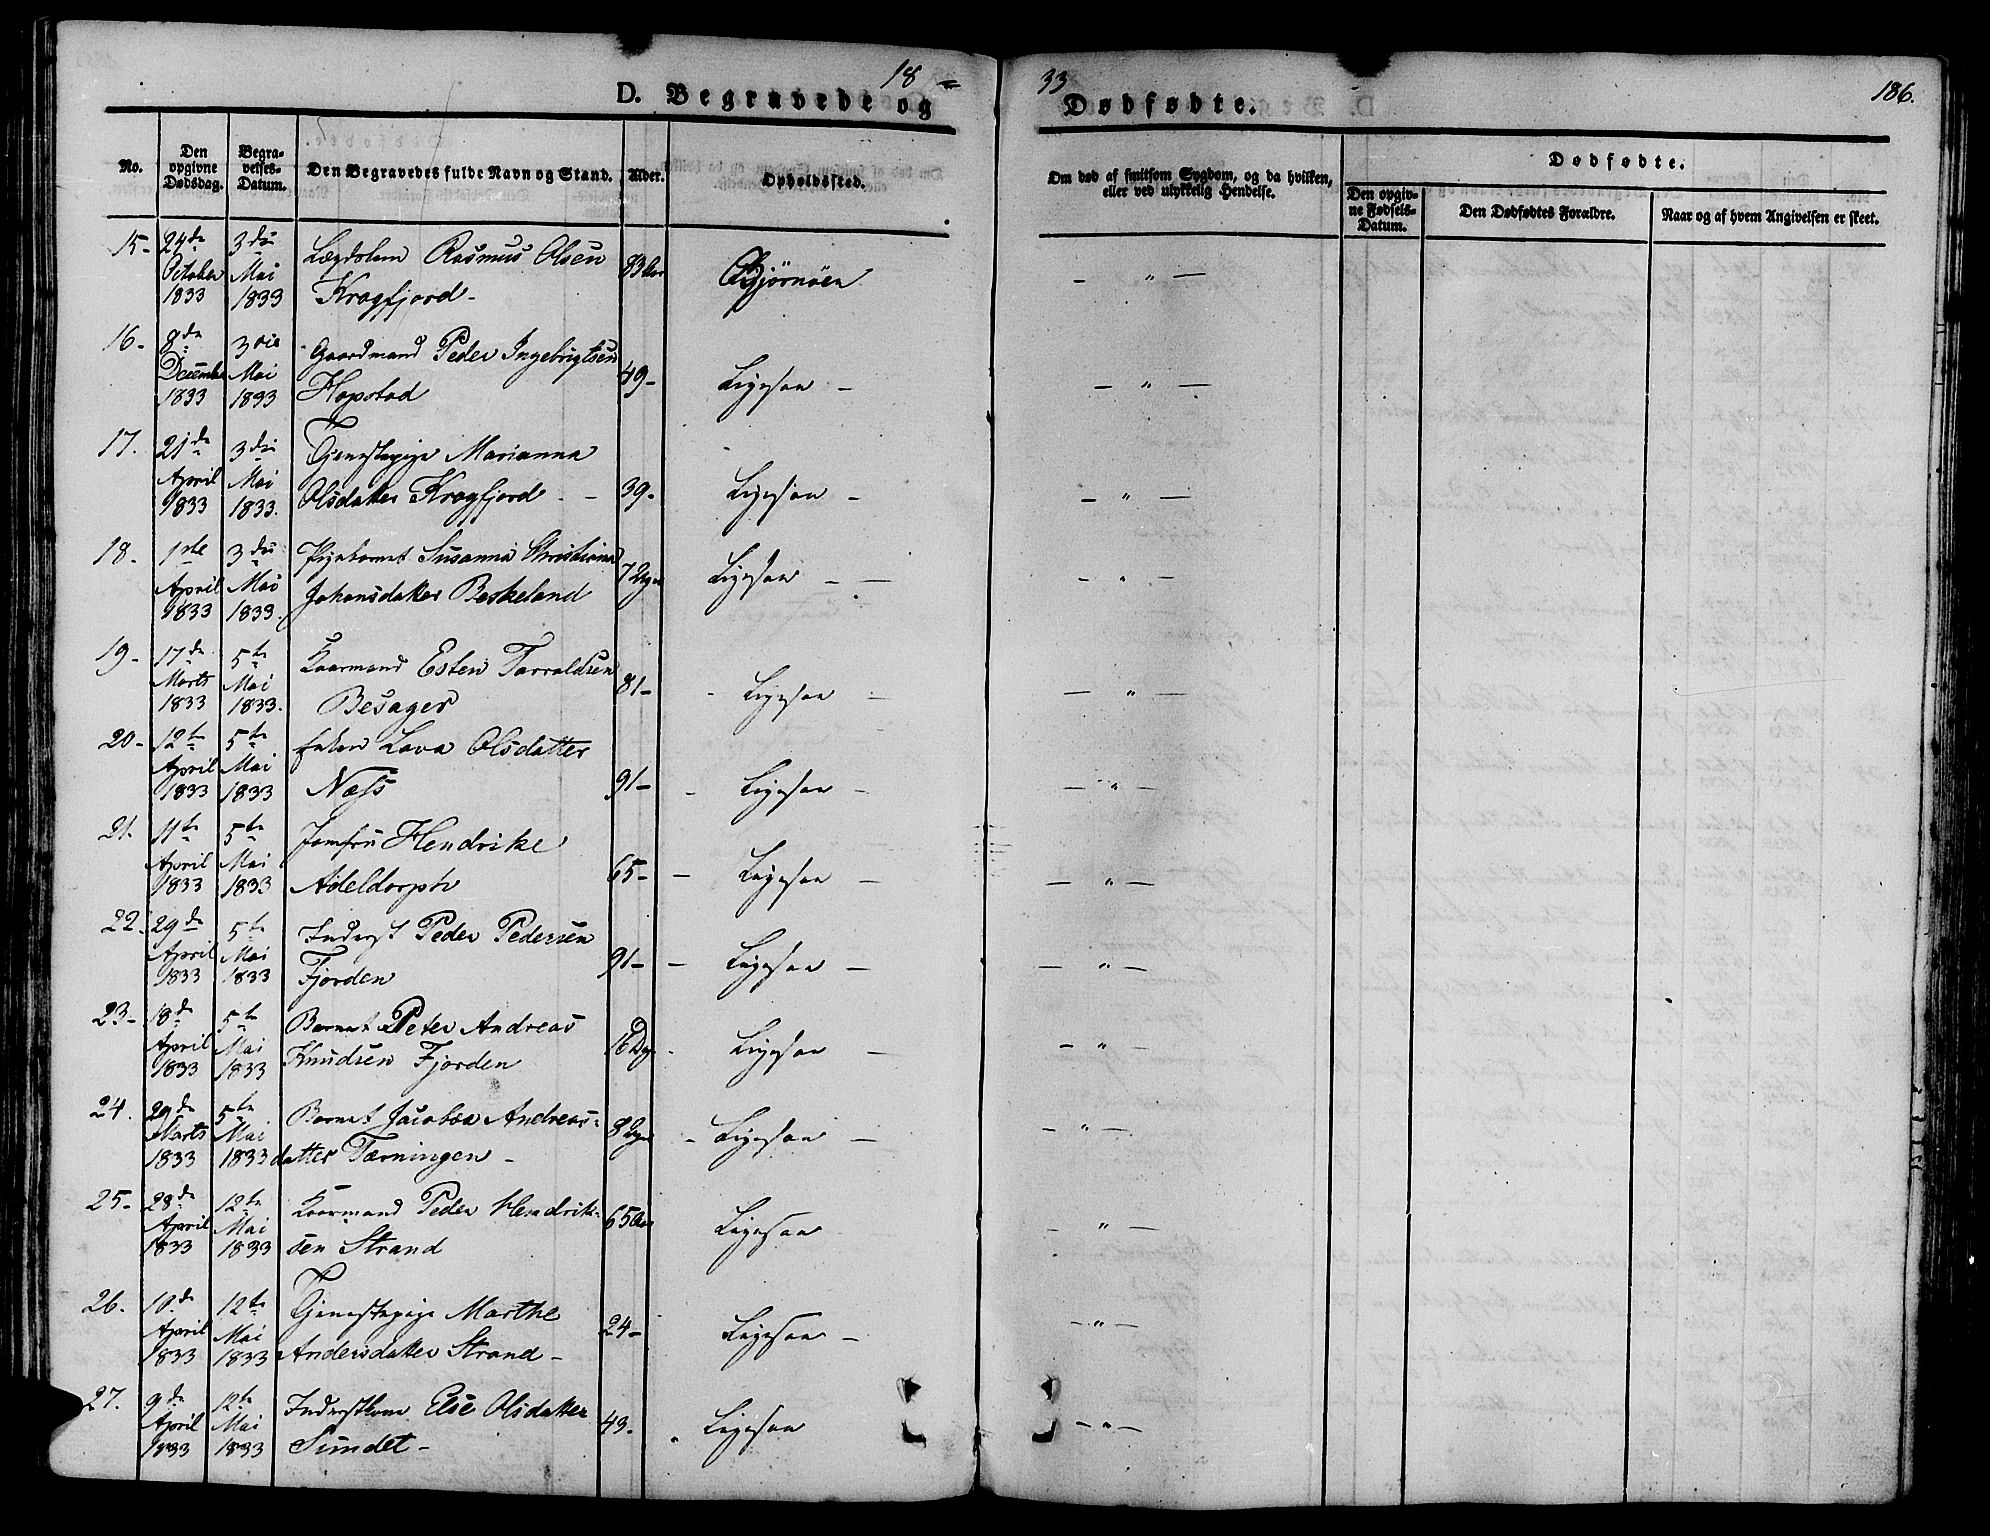 18 = 33
186.
D. Begravede og Dødfødte.
No.
Den opgivne Dødsdag.
Begravelses-Datum.
Den Begravedes fulde Navn og Stand.
Alder.
Opholdssted.
Om død af smitsom Sygdom, og da hvilken, eller ved ulykkelig Hendelse.
Dødfødte.
Den opgivne Fødsels-Datum.
Den Dødfødtes Forældre.
Naar og af hvem Angivelsen er skeet.
15- 24de 3die Lægdslem Rasmus Olsen 83 Aar Bjørnøen — " —
October Mai Kragfjord-
1833 1833
16- 8de 3die Gaardmand Peder Ingebrigtsen 49- Ligesaa — — " —
December Mai Hopstad
1833 1833
17. 21de 3die Tjenestepige Marianna
April Mai Olsdatter Kragfjord - - 39- Ligesaa — — " —
1833 1833.
18. 1ste 3die Pigebarnet Susanna Christiana 7 Uger Ligesaa — — — " —
April Mai Johansdatter Beskeland
1833 1833.
19- 17de 5te Kaarmand Esten Tarraldsen 81- - Ligesaa — — " —
Marts Mai Besager
1833 1833.
20- 12te 5te Enken Lava Olsdatter
April Mai Næss 91- - Ligesaa — — " —
1833 1833
21. 11te 5te Jomfru Hendrike
April Mai Adeldorph 65- — Ligesaa — — " —
1833 1833
22. 29de 5te Inderst Peder Pedersen
April Mai Fjorden 91- — Ligesaa — — " —
1833 1833
23- 18de 5te Barnet Peter Andreas
April Mai Knudsen Fjorden 16 Dge - Ligesaa — — " —
1833 1833
24. 29de 5te Barnet Jacobea Andreas-
Marts Mai 8 Uger - Ligesaa — — " —
1833 1833 datter Tærningen -
25- 28de 12te Kaarmand Peder Hendrik-
April Mai sen Strand 65 Aar Ligesaa — " —
1833 1833
26. 10de 12te Tjenestepige Marthe
April Mai 24- Ligesaa — — " —
1833 1833 Andersdatter Strand-
27. 9de 12te Inderstkone Else Olsdatter
April Mai Sundet- 43. " Ligesaa — " —
1833 1833